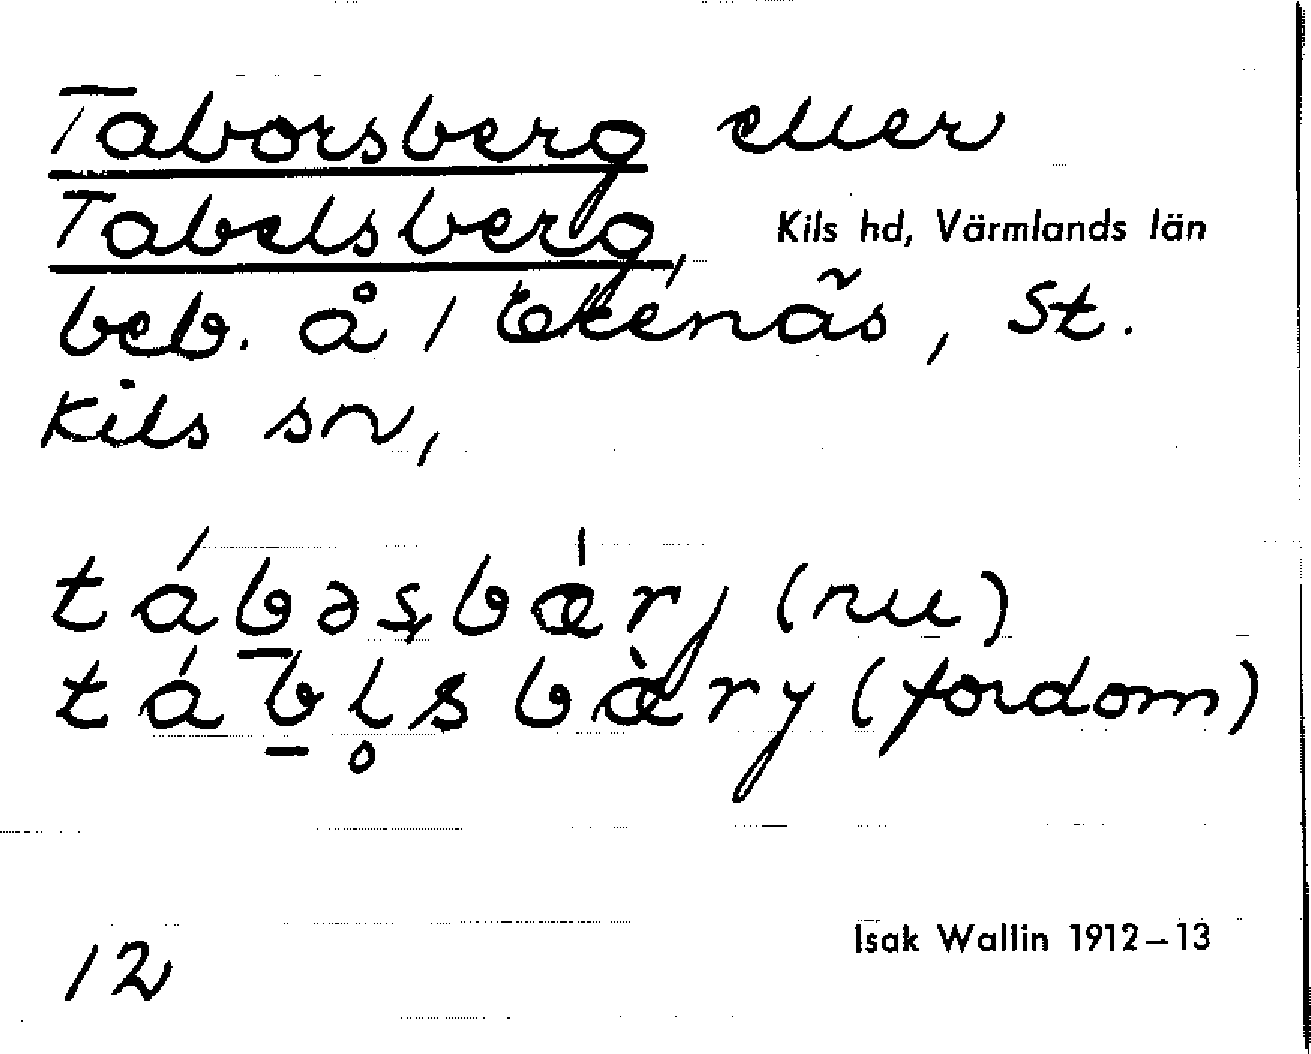 Taborsberg eller
Tabelsberg,
Kils hd, Värmlands län
beb. å 1 Ekenäs, St.
Kils sn,
tábəşbæ̀rj (nu)
táb̠l̥sbæ̀rj (fordom)
12
Isak Wallin 1912–13